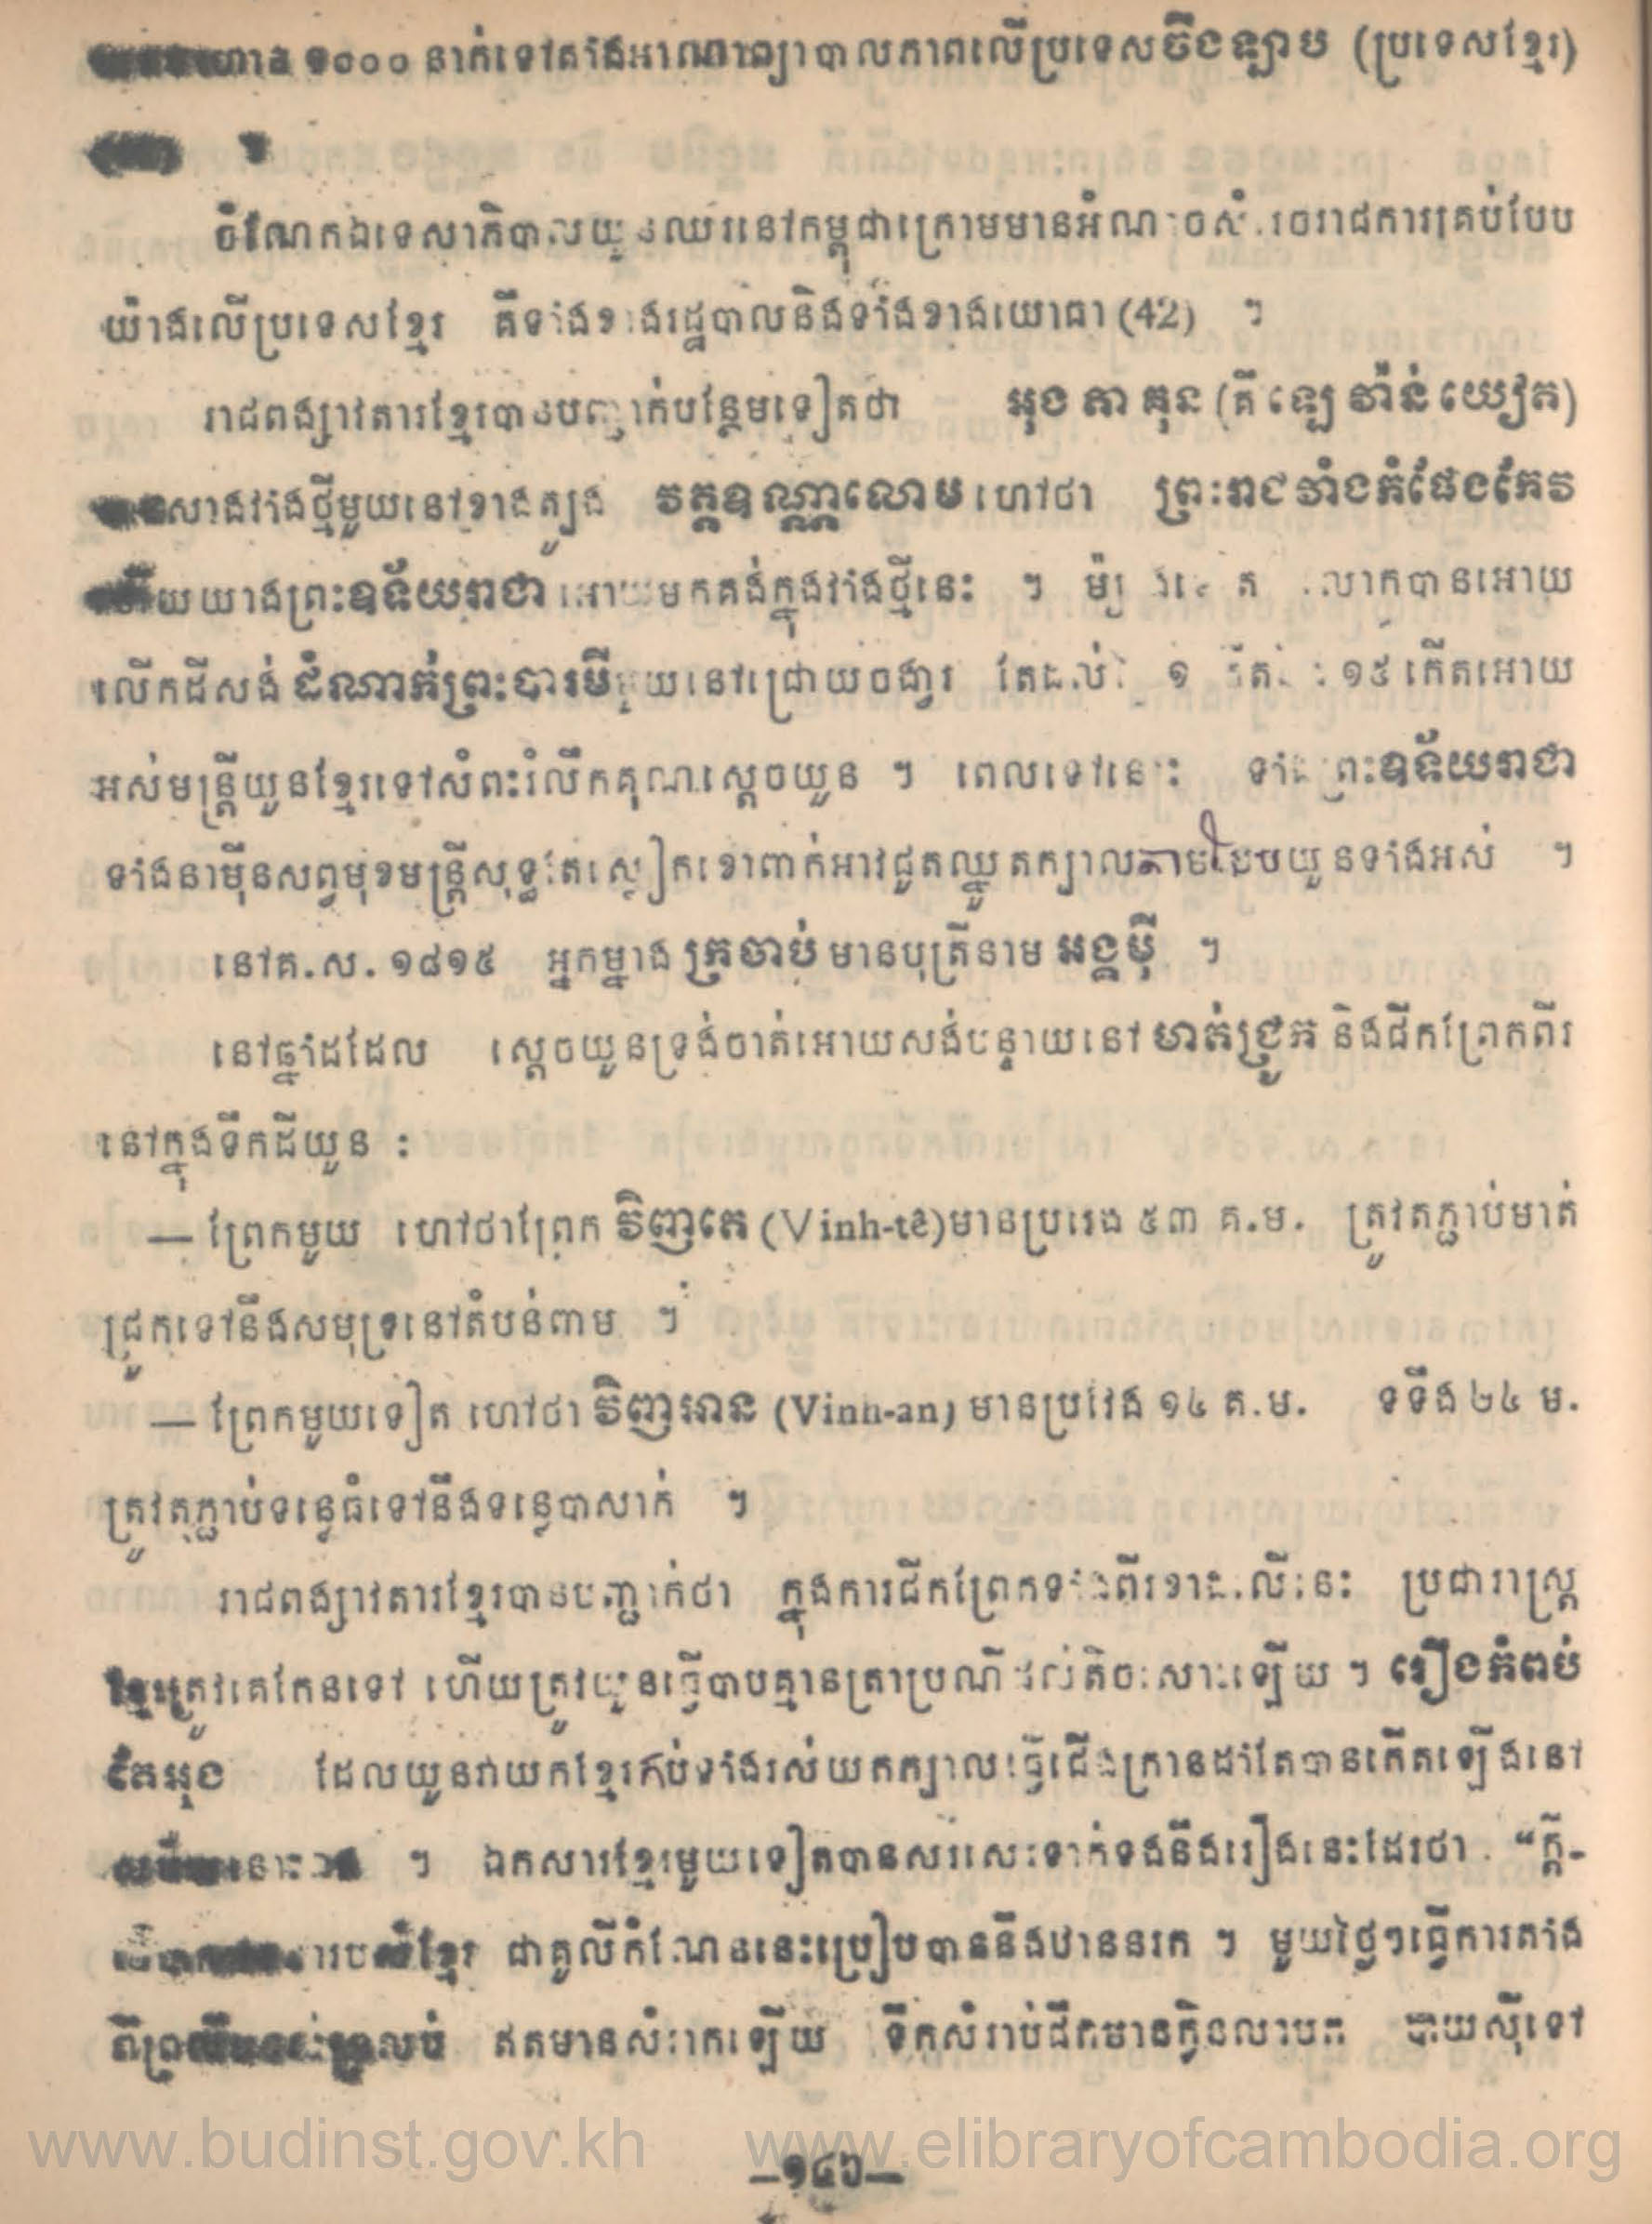 ១០០០ នាក់ទៅតាំងអាណាព្យាបាលភាពលើប្រទេសចឹងឡាប (ប្រទេសខ្មែរ)
ចំណែកឯទេសាភិបាលយួនឈរនៅកម្ពុជាក្រោមមានអំណាចសំរេចរាជការគ្រប់បែប
យ៉ាងលើប្រទេសខ្មែរ គឺទាំងខាងរដ្ឋបាលនិងទាំងខាងយោធា (42) ។
រាជពង្សាវតារខ្មែរបានបញ្ជាក់បន្ថែមទៀតថា អុង តា គុន (គឺ ឡេ វ៉ាន់ យៀត)
សាងវាំងថ្មីមួយនៅខាងត្បូង វត្តឧណ្ណាលោម ហៅថា ព្រះរាជវាំងកំផែងកែវ
ហើយយាងព្រះឧទ័យរាជា អោយមកគង់ក្នុងវាំងថ្មីនេះ ។ ម៉្យាងទៀត លោកបានអោយ
លើកដីសង់ ដំណាក់ព្រះបារមី មួយនៅជ្រោយចង្វារ តែដល់ ១ កើត ១៥ កើតអោយ
អស់មន្ត្រីយួនខ្មែរទៅសំពះរំលឹកគុណស្តេចយួន ។ ពេលទៅនោះ ទាំងព្រះឧទ័យរាជា
ទាំងនាម៉ឺនសព្វមុខមន្ត្រីសុទ្ធតែស្លៀកខោពាក់អាវជូតឈ្នួតក្បាលតាមបែបយួនទាំងអស់ ។
នៅគ.ស. ១៨១៥ អ្នកម្នាង ក្រចាប់ មានបុត្រីនាម អង្គម៉ី ។
នៅឆ្នាំដដែល ស្តេចយួនទ្រង់ចាត់អោយសង់បន្ទាយនៅ មាត់ជ្រូក និងជីកព្រែកពីរ
នៅក្នុងទឹកដីយួន :
— ព្រែកមួយ ហៅថាព្រែក វិញតេ (Vinh-tê) មានប្រវែង ៥៣ គ.ម. ត្រូវតភ្ជាប់មាត់
ជ្រូកទៅនឹងសមុទ្រនៅតំបន់ពាម ។
— ព្រែកមួយទៀត ហៅថា វិញអាន (Vinh-an) មានប្រវែង ១៤ គ.ម. ទទឹង ២៤ ម.
ត្រូវតភ្ជាប់ទន្លេធំទៅនឹងទន្លេបាសាក់ ។
រាជពង្សាវតារខ្មែរបានបញ្ជាក់ថា ក្នុងការជីកព្រែកទាំងពីរខាងលើនេះ ប្រជារាស្ត្រ
ខ្មែរត្រូវគេកែនទៅ ហើយត្រូវយួនធ្វើបាបគ្មានត្រាប្រណីដល់តិចសោះឡើយ ។ រឿងកំពប់
តែអុង ដែលយួនវាយកខ្មែរកប់ទាំងរស់យកក្បាលធ្វើជើងក្រានដាំតែបានកើតឡើងនៅ
នោះឯង ។ ឯកសារខ្មែរមួយទៀតបានសរសេរទាក់ទងនឹងរឿងនេះដែរថា “ក្តី-
របស់ខ្មែរ ជាគូលីកំណែននេះប្រៀបបាននឹងឋាននរក ។ មួយថ្ងៃៗធ្វើការតាំង
ពីព្រលឹមទល់ព្រលប់ ឥតមានសំរាកឡើយ ទឹកសំរាប់ផឹកមានក្លិនលាមក បាយស៊ីទៅ
—១៤៦—
www.budinst.gov.kh www.elibraryofcambodia.org